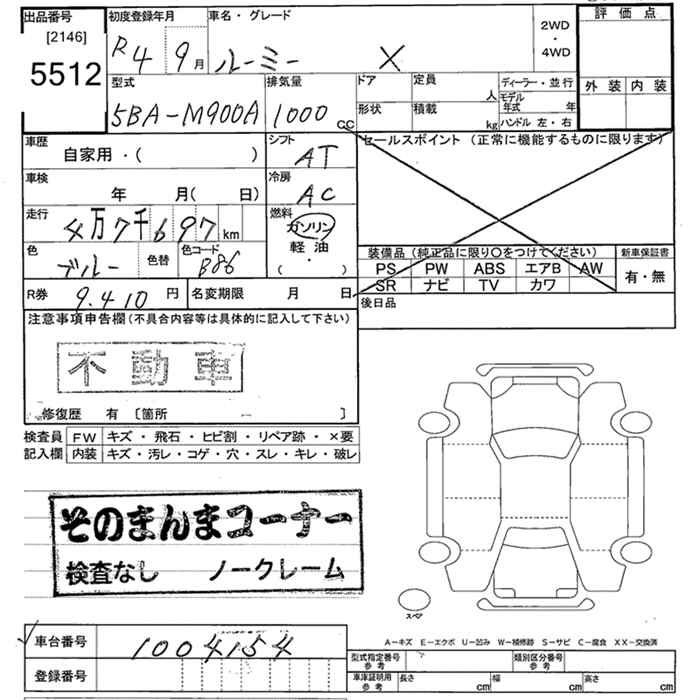 出品番号
[2146]
5512
初度登録年月
R4 9月
車名・グレード
ルーミー X
2WD
・
4WD
評価点
外装 内装
型式
5BA-M900A
排気量
1000 cc
ドア
形状
定員 人
積載 kg
ディーラー・並行
モデル年式 年
ハンドル 左・右
車歴
自家用・( )
シフト
AT
セールスポイント (正常に機能するものに限ります)
車検
年 月( 日)
冷房
AC
走行
4万7千697km
燃料
ガソリン
軽油
・
( )
色
ブルー
色替
色コード
B86
装備品 (純正品に限り○をつけてください)
PS PW ABS エアB AW
SR ナビ TV カワ
新車保証書
有・無
R券 9.410 円
名変期限 月 日
後日品
注意事項申告欄(不具合内容等は具体的に記入して下さい)
不動車
修復歴 有 〔箇所 〕
検査員 FW キズ・飛石・ヒビ割・リペア跡・×要
記入欄 内装 キズ・汚レ・コゲ・穴・スレ・キレ・破レ
そのまんまコーナー
検査なし ノークレーム
スペア
車台番号 1004154
登録番号
A−キズ E−エクボ U−凹み W−補修跡 S−サビ C−腐食 XX−交換済
型式指定番号 参考
類別区分番号 参考
車庫証明用 参考 長さ cm 幅 cm 高さ cm